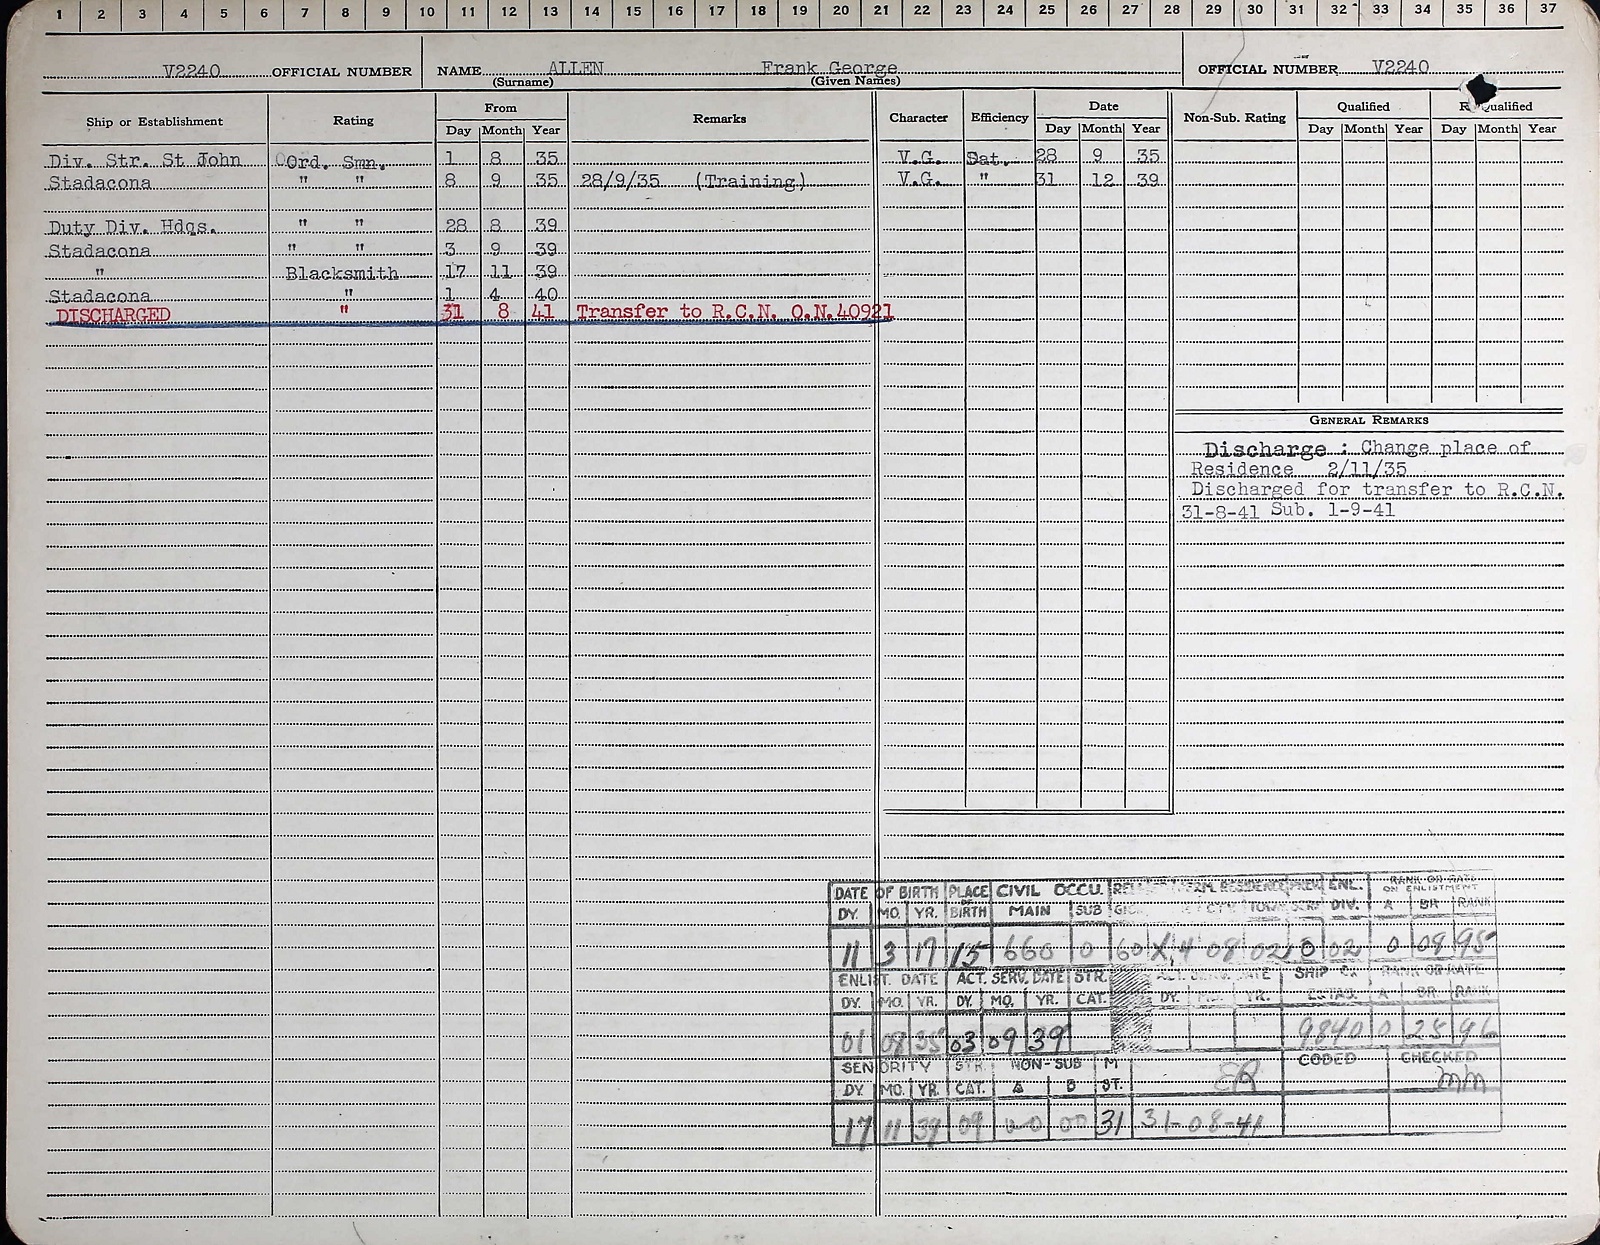 1 2 3 4 5 6 7 8 9 10 11 12 13 14 15 16 17 18 19 20 21 22 23 24 25 26 27 28 29 30 31 32 33 34 35 36 37
V2240 OFFICIAL NUMBER NAME ALLEN Frank George OFFICIAL NUMBER V2240
(Surname) (Given Names)
Ship or Establishment Rating From Remarks Character Efficiency Date Non-Sub. Rating Qualified Qualified
Day Month Year Day Month Year Day Month Year Day Month Year
Div. Str. St John Ord. Smn. 1 8 35 V.G. Sat. 28 9 35
Stadacona " " 8 9 35 28/9/35 (Training) V.G. " 31 12 39
Duty Div. Hdqs. " " 28 8 39
Stadacona " " 3 9 39
" Blacksmith 17 11 39
Stadacona " 1 4 40
DISCHARGED " 31 8 41 Transfer to R.C.N. O.N.40921
GENERAL REMARKS
Discharge : Change place of
Residence 2/11/35
Discharged for transfer to R.C.N.
31-8-41 Sub. 1-9-41
DATE OF BIRTH PLACE OF BIRTH CIVIL OCCU. RESIDENCE ENL. DIV. RANK OR RATE ON ENLISTMENT
DY. MO. YR. MAIN SUB A BR RANK
11 3 17 15 660 0 60 4 08 02 0 02 0 08 95
ENLIST. DATE ACT. SERV. DATE STR. CAT. SHIP OR ESTAB. RANK OR RATE
DY. MO. YR. DY. MO. YR. DY. MO. YR. A BR. RANK
01 08 35 03 09 39 9840 0 25 96
SENIORITY STR. CAT. NON-SUB M ST. CODED CHECKED
DY. MO. YR. A B
17 11 39 09 00 00 31 31-08-41